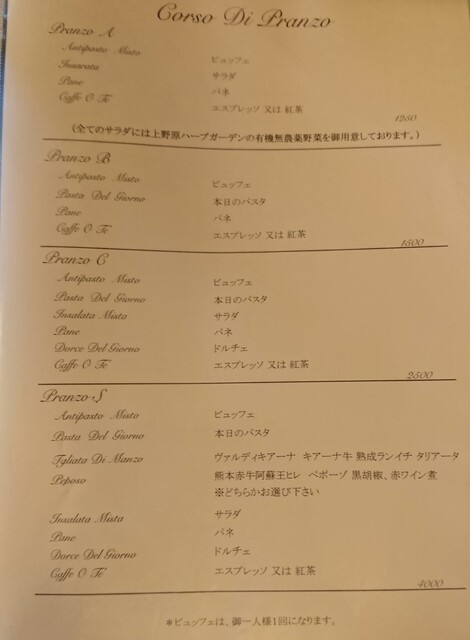 Corso Di Pranzo
Pranzo A
Antipasto Misto ビュッフェ
Insarata サラダ
Pane パネ
Caffe O Te エスプレッソ 又は 紅茶
1250
(全てのサラダには上野原ハーブガーデンの有機無農薬野菜を御用意しております。)
Pranzo B
Antipasto Misto ビュッフェ
Pasta Del Giorno 本日のパスタ
Pane パネ
Caffe O Te エスプレッソ 又は 紅茶
1500
Pranzo C
Antipasto Misto ビュッフェ
Pasta Del Giorno 本日のパスタ
Insalata Misto サラダ
Pane パネ
Dorce Del Giorno ドルチェ
Caffe O Te エスプレッソ 又は 紅茶
2500
Pranzo S
Antipasto Misto ビュッフェ
Pasta Del Giorno 本日のパスタ
Tgliata Di Manzo ヴァルディキアーナ キアーナ牛 熟成ランイチ タリアータ
Peposo 熊本赤牛阿蘇王ヒレ ペポーゾ 黒胡椒、赤ワイン煮
※どちらかお選び下さい
Insalata Mista サラダ
Pane パネ
Dorce Del Giorno ドルチェ
Caffe O Te エスプレッソ 又は 紅茶
4000
*ビュッフェは、御一人様1回になります。